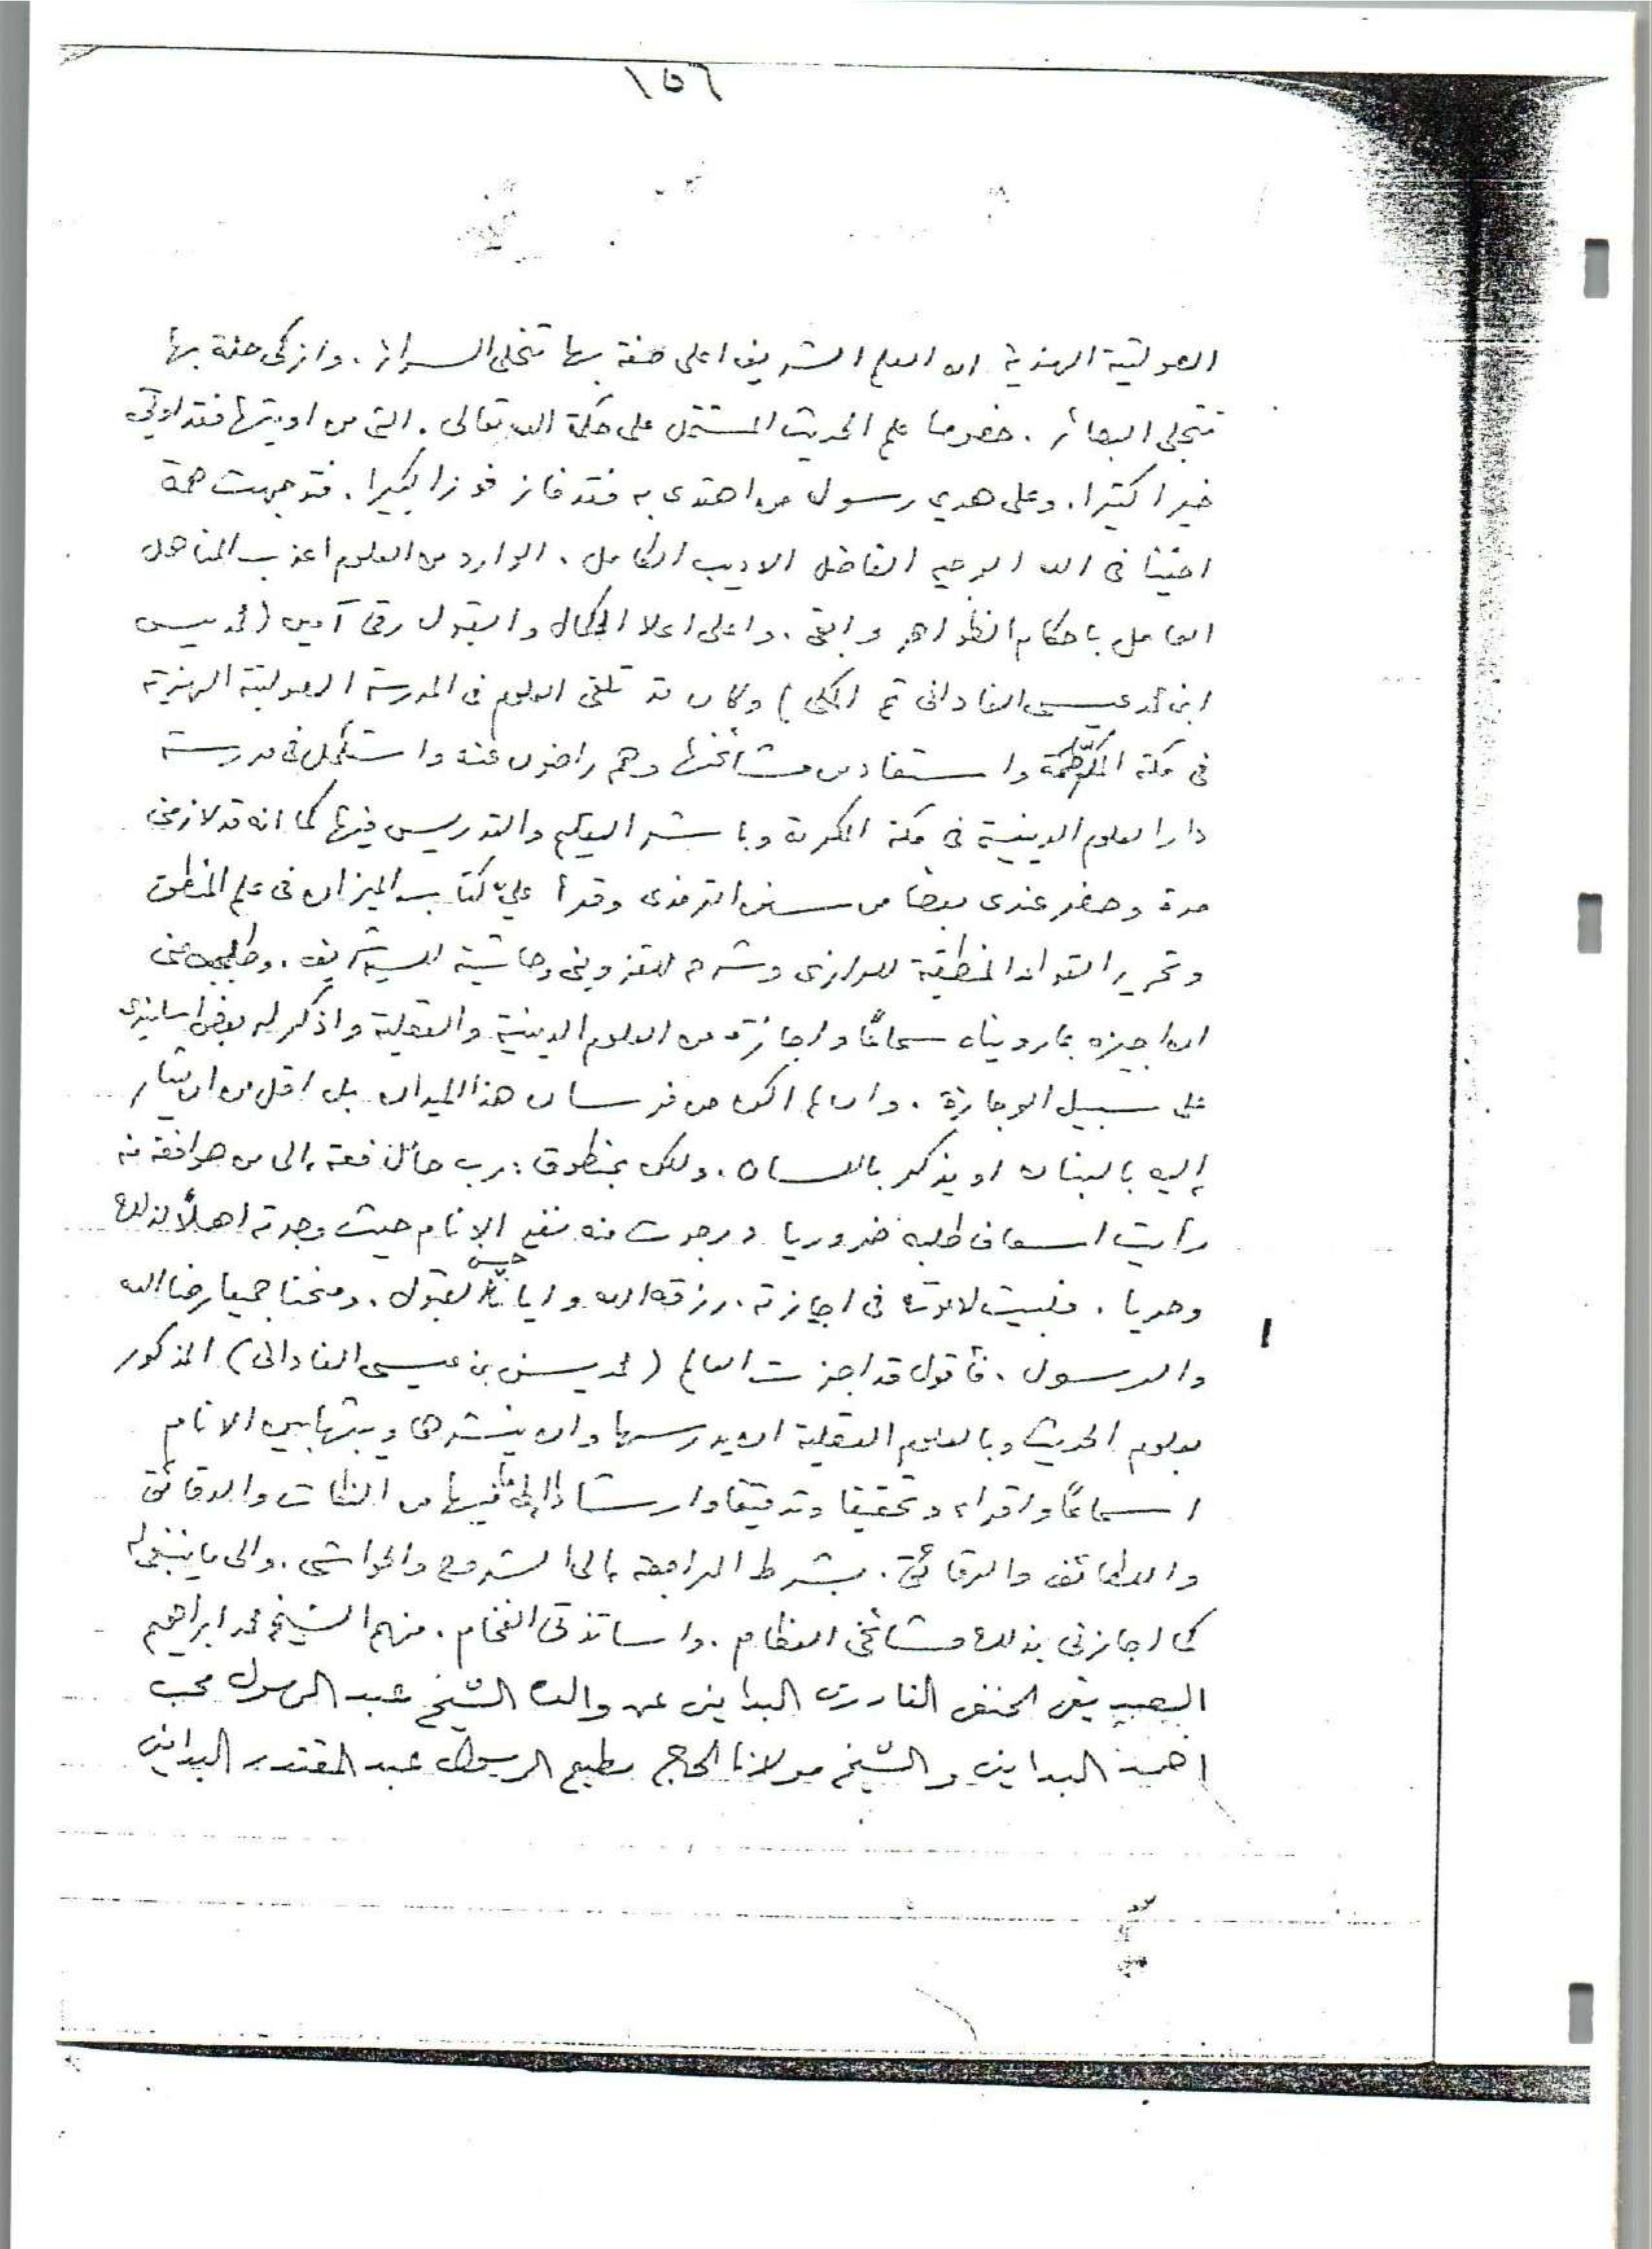 ١٥٦
الصولتية الهندية ان العلم الشريف اعلى صفة بها تتحلى السرائر. وازكى صفة بها
تتجلى البصائر. خصوصا علم الحديث المشتمل على حكمة الله تعالى. التى من اوتيها فقد اوتى
خيرا كثيرا. وعلى هدي رسول من اهتدى به فقد فاز فوزا كبيرا. فتوجهت همة
اخينا فى الله الوجيه الفاضل الاديب الكامل. الوارد من العلوم اعذب المناهل
العامل باحكام الظواهر والتقى. واعلى اعلا الكمال والقبول رقى آمين (محمد يسن
ابن محمد عيسى الفادانى ثم المكى) وكان قد تلقى العلوم فى المدرسة الصولتية الهندية
فى مكة المكرمة واستفاد من مشائخها وهم راضون عنه واستكمل فى مدرسة
دار العلوم الدينية فى مكة المكرمة وباشر التعليم والتدريس فيها كما انه قد لازمنى
مدة وحضر عندى بعضا من سنن الترمذى وقرأ علي كتاب الميزان فى علم المنطق
وتحرير القواعد المنطقية للرازى وشرح للقزوينى وحاشية للسيد الشريف. وطلب منى
ان اجيزه بما رويناه سماعًا واجازة من العلوم الدينية والعقلية واذكر له بعض اسانيدى
على سبيل الوجازة. وان لم اكن من فرسان هذا الميدان بل اقل من ان يشار
إليه بالبنان او يذكر باللسان. ولكن بمنطوق: رب حامل فقه إلى من هو افقه منه
رأيت اسعاف طلبه ضروريا ورجوت منه نفع الانام حيث وجدته اهلاً لذلك
وحريا. فلبيت لدعوته فى اجازته. رزقه الله وايانا حسن القبول. ومنحنا جميعا رضا الله
والرسول. فأقول قد اجزت العالم (محمد يسن بن عيسى الفادانى) المذكور
بعلوم الحديث وبالعلوم العقلية ان يدرسها وان ينشرها ويبثها بين الانام
اسماعًا واقراء وتحقيقا وتدقيقا وارشادا إلى ما فيها من النكات والدقائق
واللطائف والرقائق. بشرط المراجعة إلى الشروح والحواشى. والى ما ينبغى له
كما اجازنى بذلك مشائخى العظام. واساتذتى الفخام. منهم الشيخ محمد ابراهيم
الصديقى الحنفى القادرى البداينى عن والده الشيخ عبد الرسول محب
احمد البداينى والشيخ مولانا الحاج مطيع الرسول عبد المقتدر البداينى